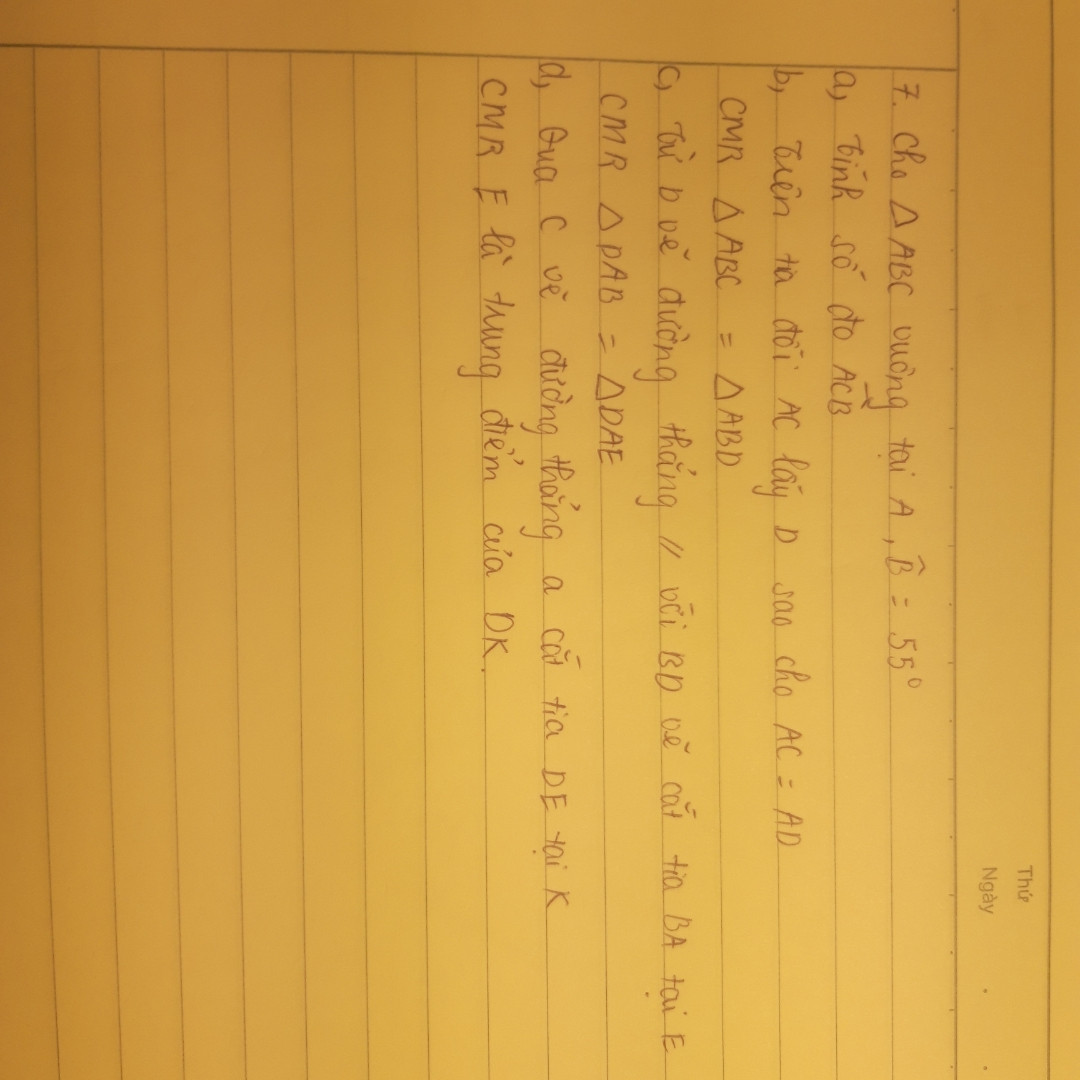 Thứ
Ngày
7. Cho △ABC vuông tại A, B̂ = 55°
a, Tính số đo ACB
b, Trên ta đối AC lấy D sao cho AC = AD
CMR △ABC = △ABD
c, Từ D vẽ đường thẳng // với BD vẽ cắt tia BA tại E
CMR △DAB = △DAE
d, Qua C vẽ đường thẳng a cắt tia DE tại K
CMR E là trung điểm của DK.